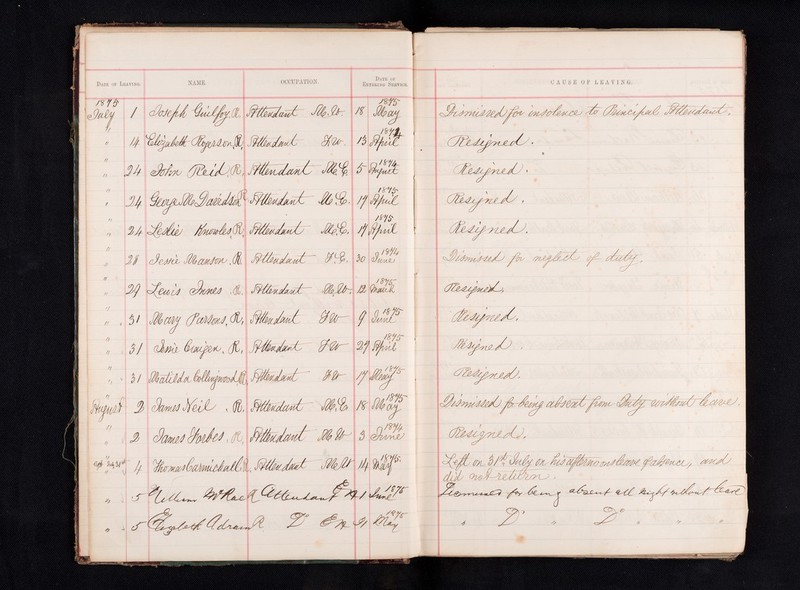 DATE OF LEAVING. NAME. OCCUPATION. DATE OF ENTERING SERVICE. CAUSE OF LEAVING.
1875 July 1 Joseph Guilfoy R. Attendant M.W. 18 May 1875 Dismissed for insolence to Principal Attendant.
" 14 Elizabeth Rogerson, R. Attendant F.W. 13 April 1874 Resigned.
" 24 John Reid, R. Attendant M.E. 5 August 1874 Resigned.
" 24 George McDavidson R. Attendant M.E. 19 April 1875 Resigned.
" 24 Leslie Knowles, R. Attendant M.E. 19 April 1875 Resigned.
" 28 Jessie Manson, R. Attendant F.E. 30 June 1874 Dismissed for neglect of duty.
" 29 Lewis Innes R. Attendant M.W. 12 March 1875 Resigned.
" 31 Mary Parsons, R. Attendant F.W. 9 June 1875 Resigned.
" 31 Jessie Craigen, R. Attendant F.W. 29 April 1875 Resigned.
" 31 Matilda Collingwood R. Attendant F.W. 17 May 1875 Resigned.
August 2 James Neil, R. Attendant M.E. 18 May 1875 Dismissed for being absent from Duty without leave.
" 2 James Forbes, R. Attendant M.W. 3 June 1874 Resigned.
July 31st 4 Thomas Carmichall R. Attendant M.W. 14 May 1875 Left on 31st July on his afternoons leave of absence, and
did not return.
" 5 McRae R Attendant 1 June 1875 Dismissed for being absent all night without leave
" 5 Elizabeth Adram R Do 21 May 1875 " Do " Do " " "